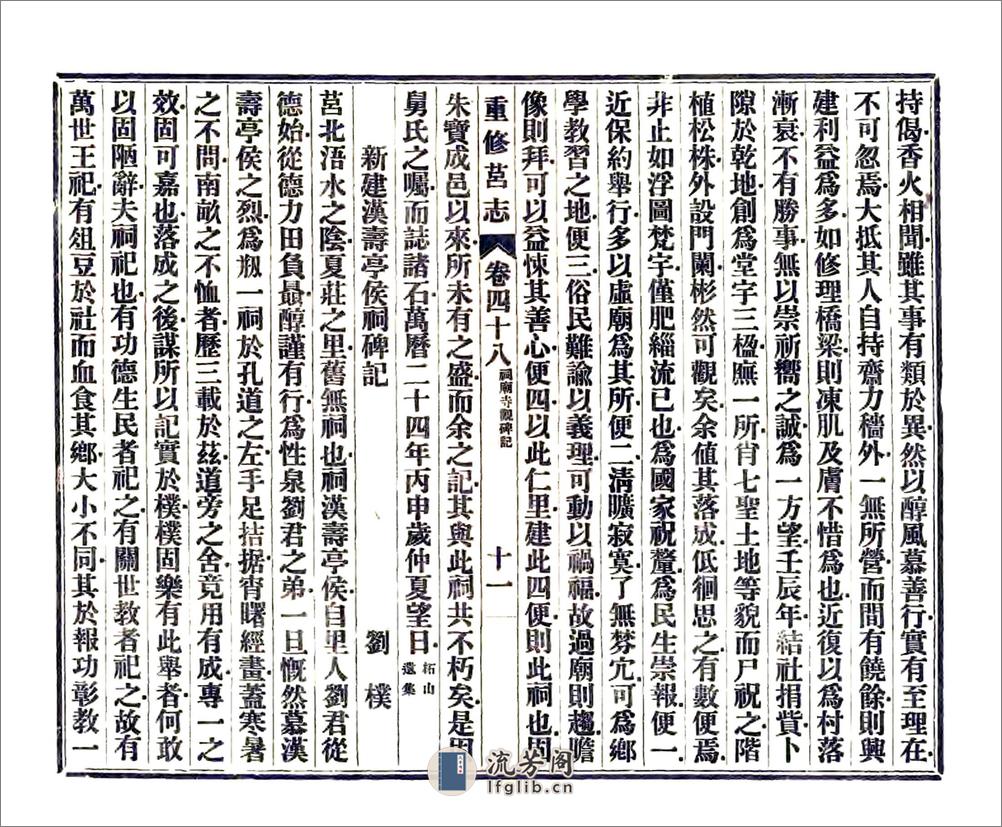 持偈香火相聞雖其事有類於異然以醇風慕善行實有至理在
不可忽焉大抵其人自持齋力穡外一無所營而間有饒餘則興
建利益爲多如修理橋梁則凍肌及膚不惜爲也近復以爲村落
漸衰不有勝事無以崇祈嚮之誠爲一方望壬辰年結社捐貲卜
隙於乾地創爲堂宇三楹廡一所肖七聖土地等貌而尸祝之階
植松株外設門闌彬然可觀矣余値其落成低徊思之有數便焉
非止如浮圖梵宇僅肥緇流已也爲國家祝釐爲民生崇報便一
近保約舉行多以虛廟爲其所便二淸曠寂寞了無棼宂可爲鄉
學教習之地便三俗民難諭以義理可動以禍福故過廟則趨瞻
像則拜可以益悚其善心便四以此仁里建此四便則此祠也固
重修莒志 卷四十八 祠廟寺觀碑記 十一
朱寶成邑以來所未有之盛而余之記其與此祠共不朽矣是用
舅氏之囑而誌諸石萬曆二十四年丙申歲仲夏望日 柘山遺集
新建漢壽亭侯祠碑記 劉樸
莒北浯水之陰夏莊之里舊無祠也祠漢壽亭侯自里人劉君從
德始從德力田負最醇謹有行爲性泉劉君之弟一旦慨然慕漢
壽亭侯之烈爲剏一祠於孔道之左手足拮据宵曙經畫蓋寒暑
之不問南畝之不恤者歷三載於茲道旁之舍竟用有成專一之
效固可嘉也落成之後謀所以記實於樸樸固樂有此舉者何敢
以固陋辭夫祠祀也有功德生民者祀之有關世教者祀之故有
萬世王祀有俎豆於社而血食其鄉大小不同其於報功彰教一
流芳閣
lfglib.cn